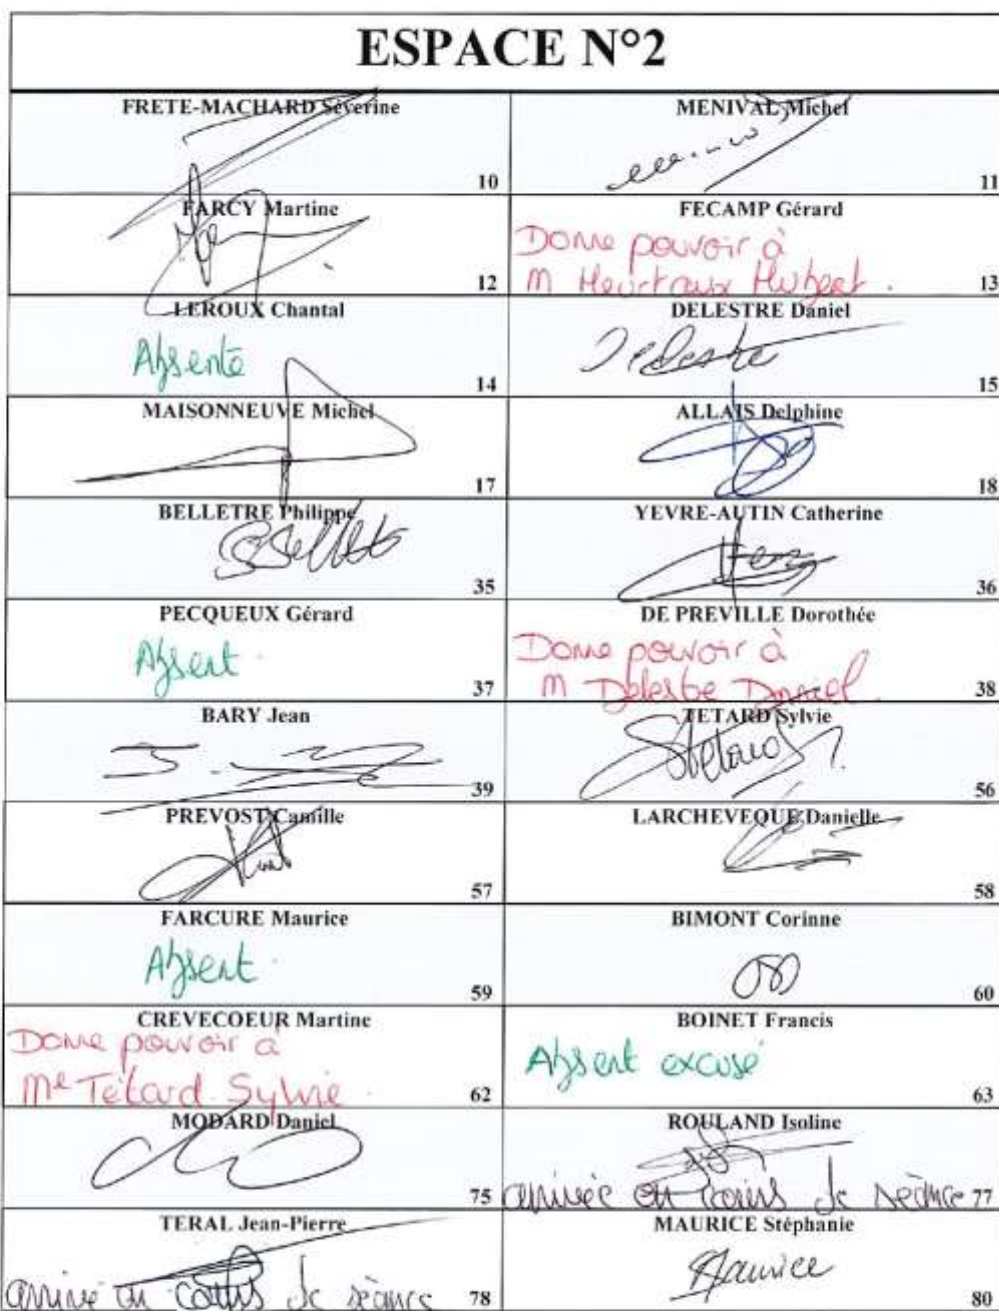 ESPACE N°2
FRETE-MACHARD Séverine
10
MENIVAL Michel
11
FARCY Martine
12
FECAMP Gérard
Donne pouvoir à
M Heurtaux Hubert.
13
LEROUX Chantal
Absente
14
DELESTRE Daniel
Delestre
15
MAISONNEUVE Michel
17
ALLAIS Delphine
18
BELLETRE Philippe
35
YEVRE-AUTIN Catherine
36
PECQUEUX Gérard
Absent.
37
DE PREVILLE Dorothée
Donne pouvoir à
M Delestre Daniel.
38
BARY Jean
39
TETARD Sylvie
56
PREVOST Camille
57
LARCHEVEQUE Danielle
58
FARCURE Maurice
Absent.
59
BIMONT Corinne
60
CREVECOEUR Martine
Donne pouvoir à
Me Tétard Sylvie.
62
BOINET Francis
Absent excusé
63
MODARD Daniel
75
ROULAND Isoline
arrivée en cours de séance 77
TERAL Jean-Pierre
arrivé en cours de séance 78
MAURICE Stéphanie
Maurice
80